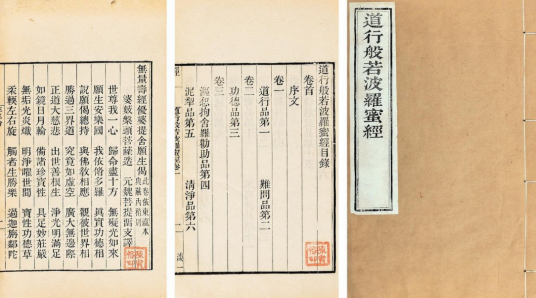 無量壽經優婆提舍願生偈
婆藪槃頭菩薩造 元魏菩提留支譯
世尊我一心 歸命盡十方 無礙光如來
願生安樂國 我依修多羅 真實功德相
說願偈總持 與佛教相應 觀彼世界相
勝過三界道 究竟如虛空 廣大無邊際
正道大慈悲 出世善根生 淨光明滿足
如鏡日月輪 備諸珍寶性 具足妙莊嚴
無垢光炎熾 明淨曜世間 寶性功德草
柔軟左右旋 觸者生勝樂 過迦旃鄰陀
道行般若波羅蜜經目錄
卷首
序文
卷一
道行品第一 難問品第二
卷二
功德品第三
卷三
漚惒拘舍羅勸助品第四
泥犁品第五 清淨品第六
道行般若波羅蜜經